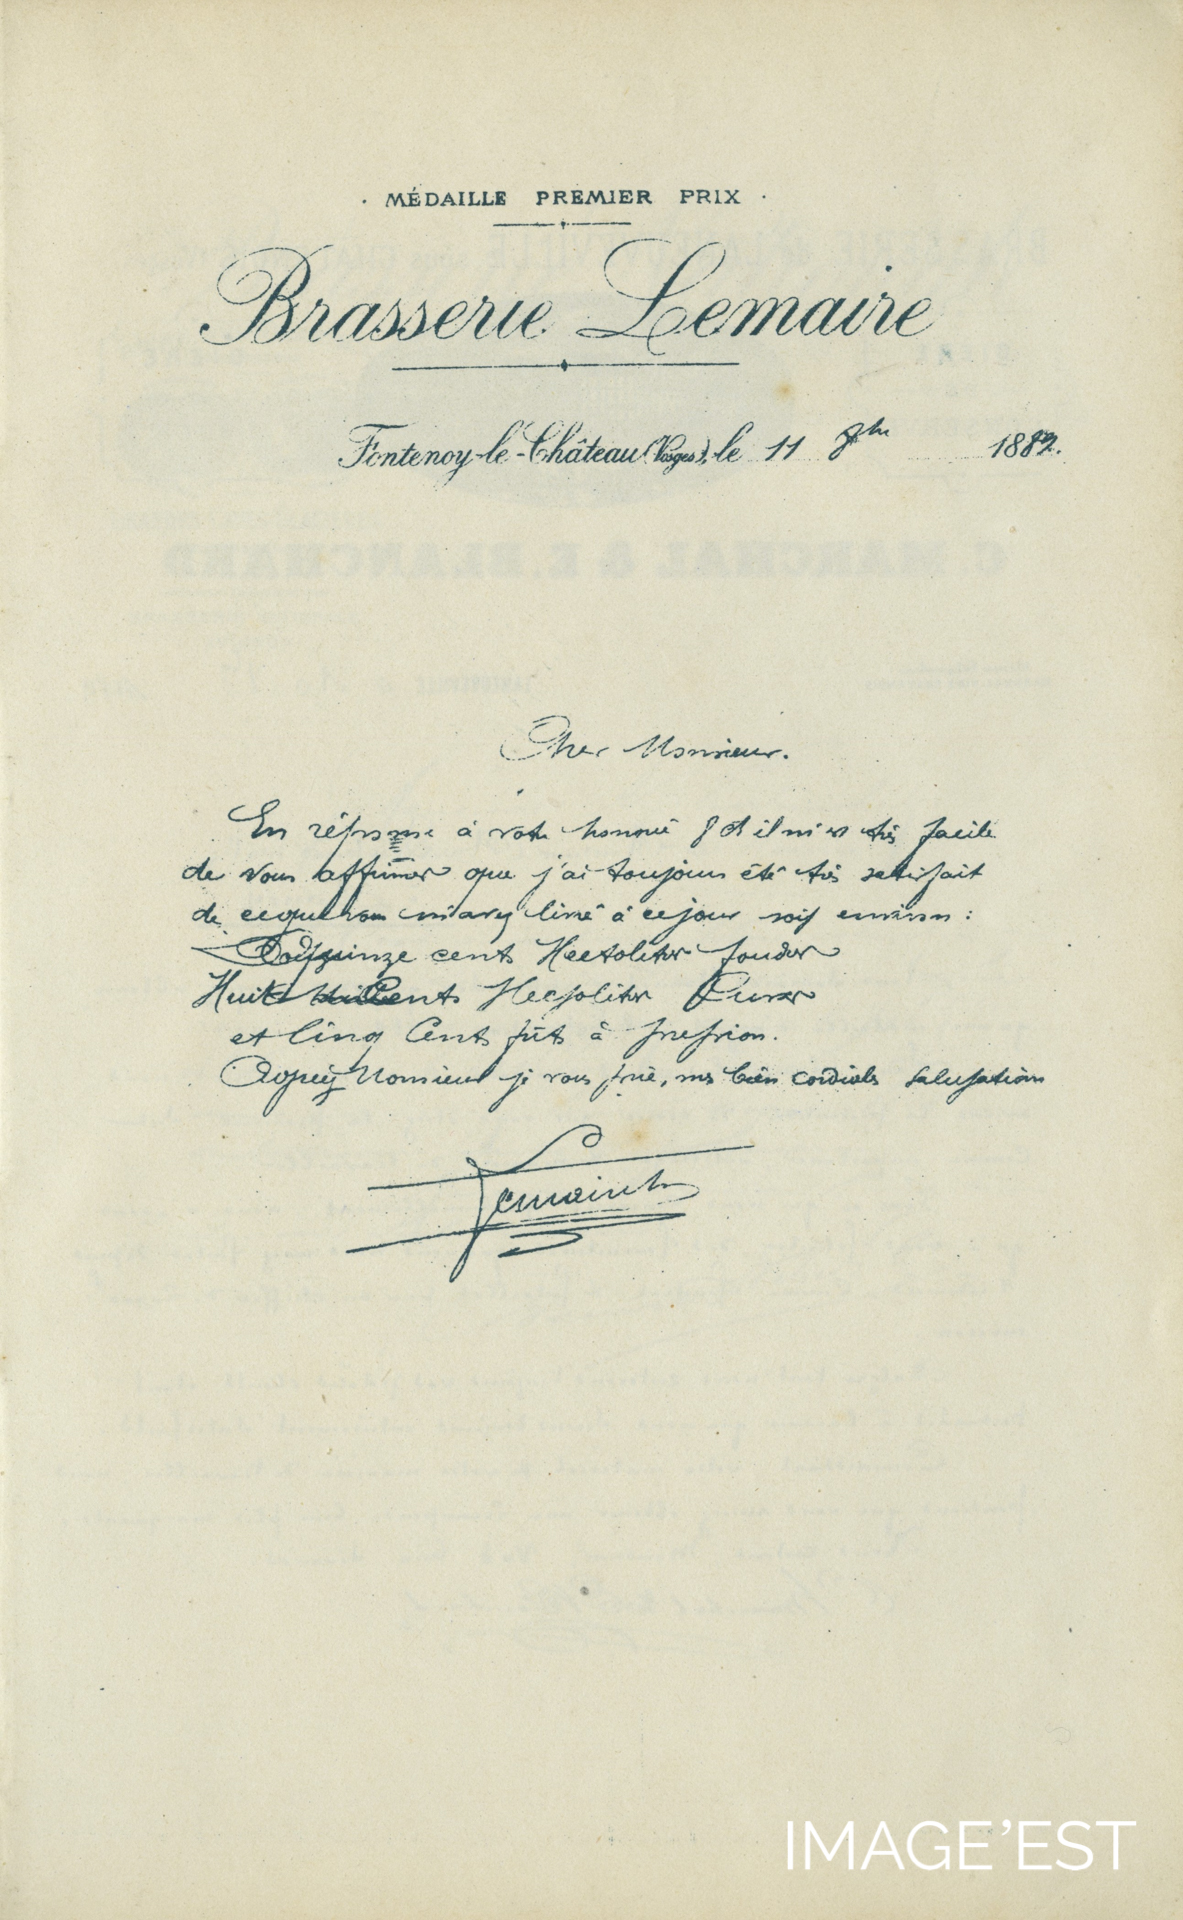 · MÉDAILLE PREMIER PRIX ·
Brasserie Lemaire
Fontenoy-le-Château (Vosges), le 11 1889.
Cher Monsieur.
En réponse à votre honoré il m'est très facile
de vous affirmer que j'ai toujours été très satisfait
de ce que vous m'avez livré à ce jour soit environ :
quinze cents Hectolitres foudres
Huit Cents Hectolitres Cuves
et Cinq Cents fûts à pression.
Agréez Monsieur je vous prie, mes bien cordiales salutations
Lemaire
C. MARCHAL & E. BLANCHARD
IMAGE'EST